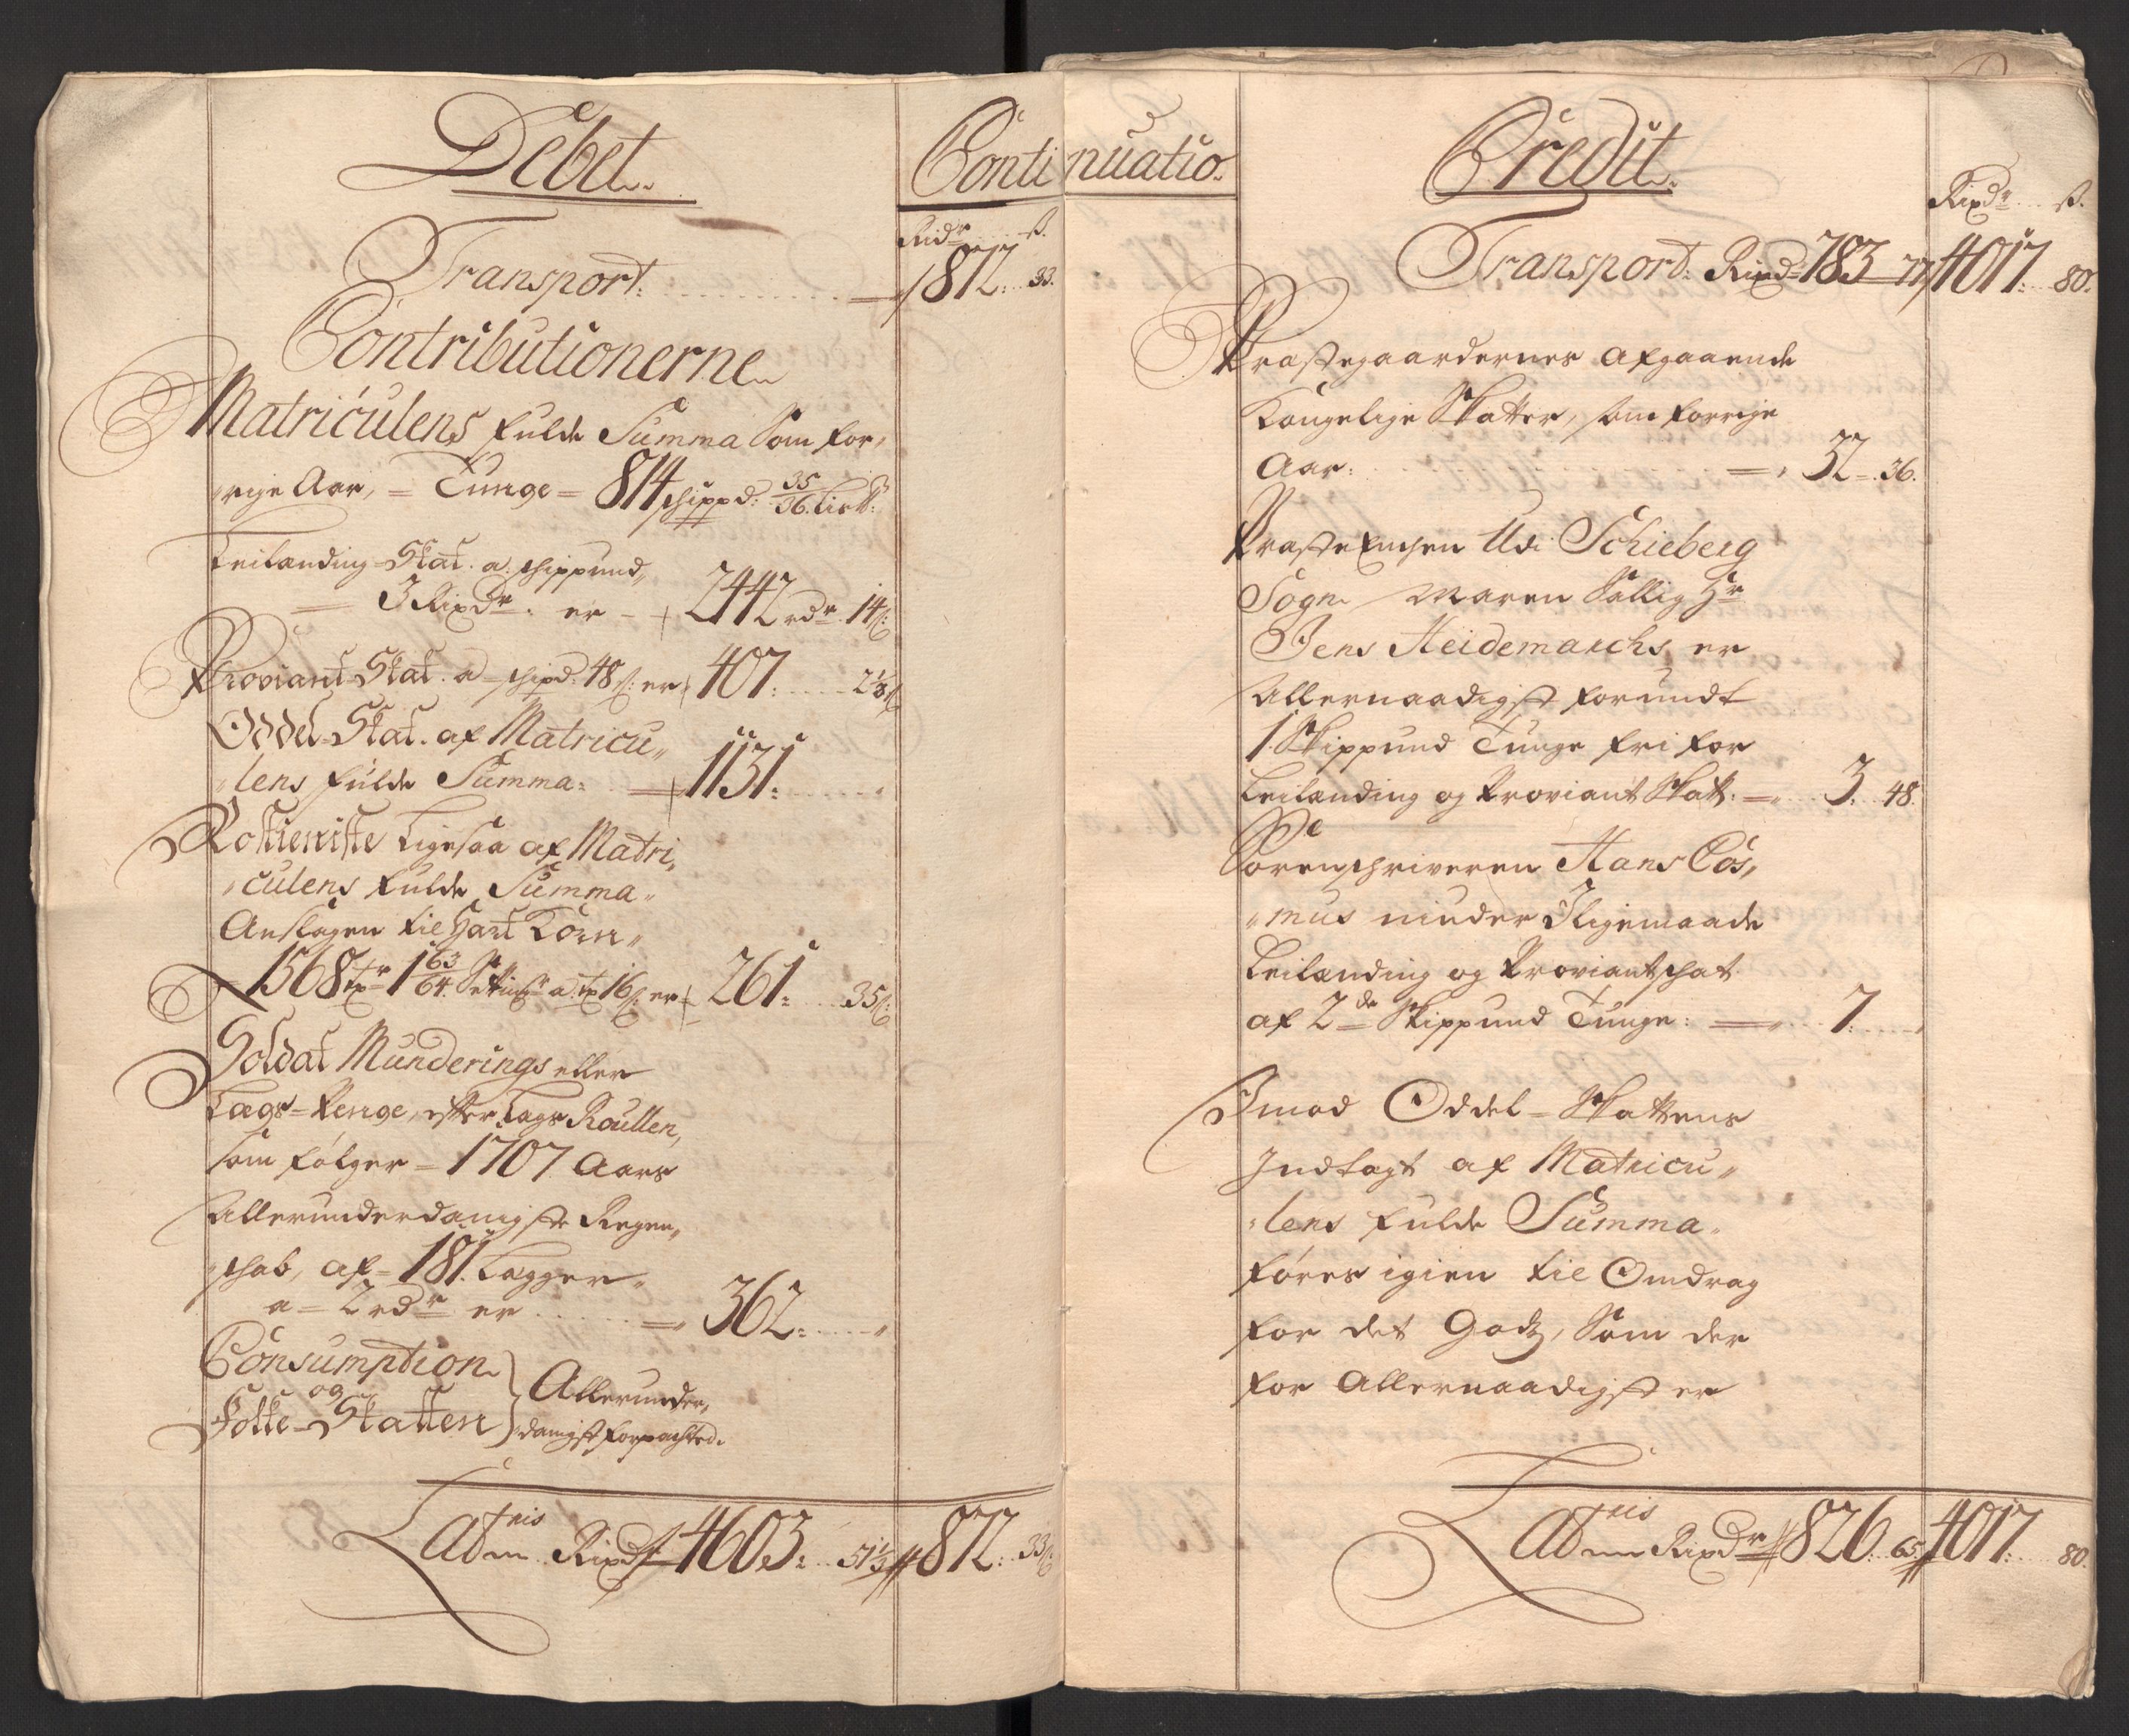 Debet.
Continuatio.
Rixdr. ß.
Transport: 872: 33.
Contributionerne
Matriculens fulde Summa Som for„
„rige Aar, = Tunge = 814 schippd: 35/36 lis℔:
Leilending-Skat. a. schippund„
3 Rixdr. er 2442 rdr. 14ß:
Proviant-Skat. a schipd. 48ß: er 407: 2⅛ß
Oddel-Skat. af Matricu„
„lens fulde Summa: 1131:
Rostieniste Ligesaa af Matri„
„culens fulde Summa„
Anslagen til Hart Korn„
1568 tr 1 63/64 a tr 16ß: er 261: 35ß:
Soldat Munderings eller
Lægs-Penge, efter Lægs Roullen,
som følger = 1707 Aars
Allerunderdanigste Regen„
„schab, af = 181. Lægger„
a = 2 rdr er 362:
Consumption
og
Folke-Skatten } Allerunder„
danigst forpachted.
Latris Rixdr 4603: 51⅓ 872: 33ß:
Credit.
Rixdr. ß.
Transport: Rixd 783 77 4017: 80.
Præstegaardernes afgaaende
Kongelige Skatter, som forrige
Aar: 32 36.
Præsteenchen Udi Schieberg
Sogn Maren Sallig Hr
Jens Heidemarchs er
Allernaadigst forundt
1. Skippund Tunge fri for
Leilending og Proviant Skatt: 3. 48.
Sorenschriveren Hans Cos„
„mus niuder Jligemaade
Leilending og Proviantschat
af 2de Skippund Tunge: 7.
Jmod Oddel-Skattens
Jndtagt af Matricu„
„lens fulde Summa„
føres igien til Omdrag
for det Godz, Som der
for Allernaadigst er
Latris Rixdr 826: 65 4017: 80.